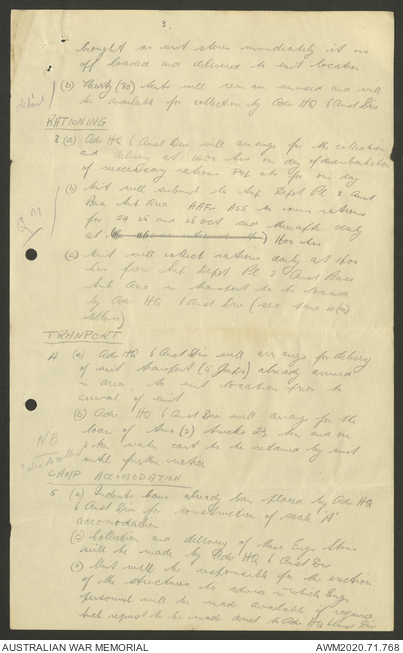 3
brought as unit stores immediately it is
off loaded and delivered to unit location
(b) Thirty (30) tents will remain unused and will
be available for collection by Adv HQ 6 Aust Div
RATIONING
3 (a) Adv HQ 6 Aust Div will arrange for the collection
and delivery at 1200 hrs on day of disembarkation
of necessary rations POL etc for one day
(b) Unit will submit to Sup Depot Pl 3 Aust
Base Sub Area AAF A55 to cover rations
for 24 25 and 26 Oct and thereafter daily
at 1600 hrs
(c) Unit will collect rations daily at 1600
hrs from Sup Depot Pl 3 Aust Base
Sub Area in transport to be
by Adv HQ 6 Aust Div (see para 4(b)
below)
QM
TRANPORT
4 (a) Adv HQ 6 Aust Div will arrange for delivery
of unit transport (5 Jeeps) already arrived
in area, to unit location prior to
arrival of unit
(b) Adv HQ 6 Aust Div will arrange for the
loan of two (2) trucks and one
water cart to be retained by unit
until further notice
NB
CAMP ACCOMODATION
5 (a) Indents have already been placed by Adv HQ
6 Aust Div for construction of scale 'A'
accomodation
(b) Collection and delivery of these Engr Stores
will be made by Adv HQ 6 Aust Div
(c) Unit will be responsible for the erection
of the structures to advise in which Engr
personnel will be made available if required
Such request to be made direct to Adv HQ 6 Aust Div
AUSTRALIAN WAR MEMORIAL
AWM2020.71.768